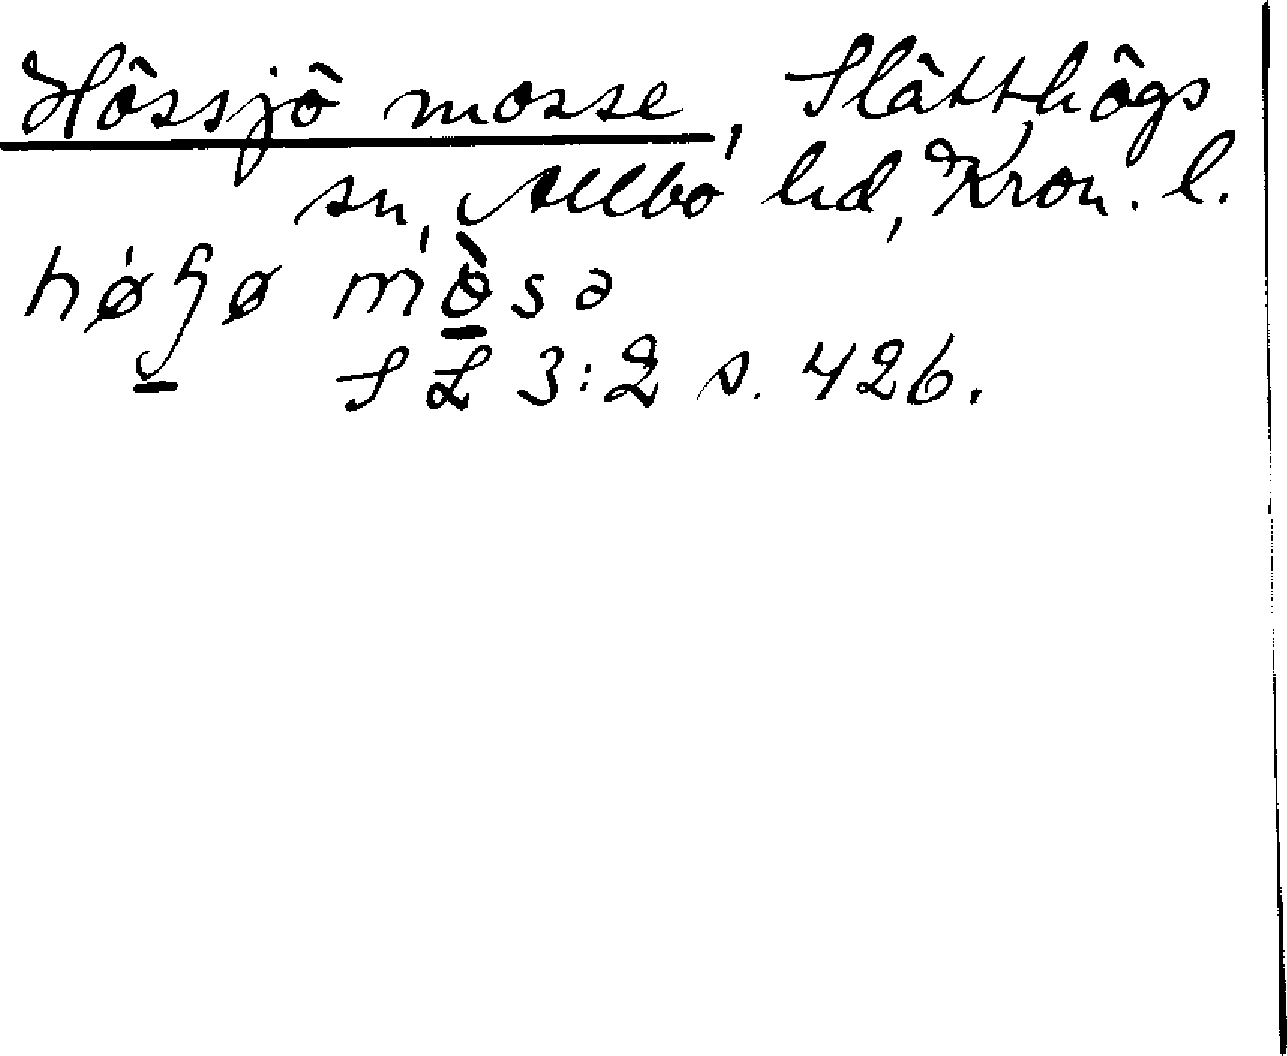 Hössjö mosse, Slätthögs
sn, Allbo hd, Kron. l.
hø̀ɧø mò̱sə
SL 3:2 s. 426.